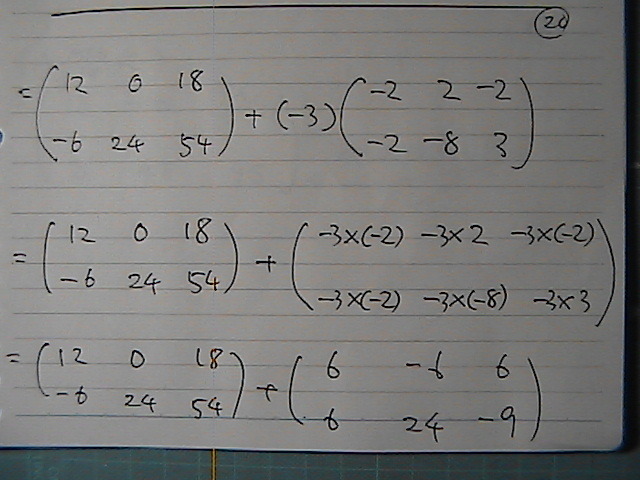 20
= ( 12 0 18
-6 24 54 ) + (-3) ( -2 2 -2
-2 -8 3 )
= ( 12 0 18
-6 24 54 ) + ( -3×(-2) -3×2 -3×(-2)
-3×(-2) -3×(-8) -3×3 )
= ( 12 0 18
-6 24 54 ) + ( 6 -6 6
6 24 -9 )